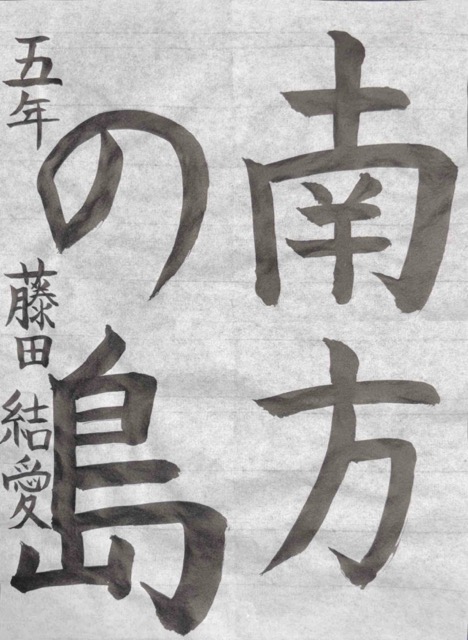 南方
の島
五年 藤田 結愛